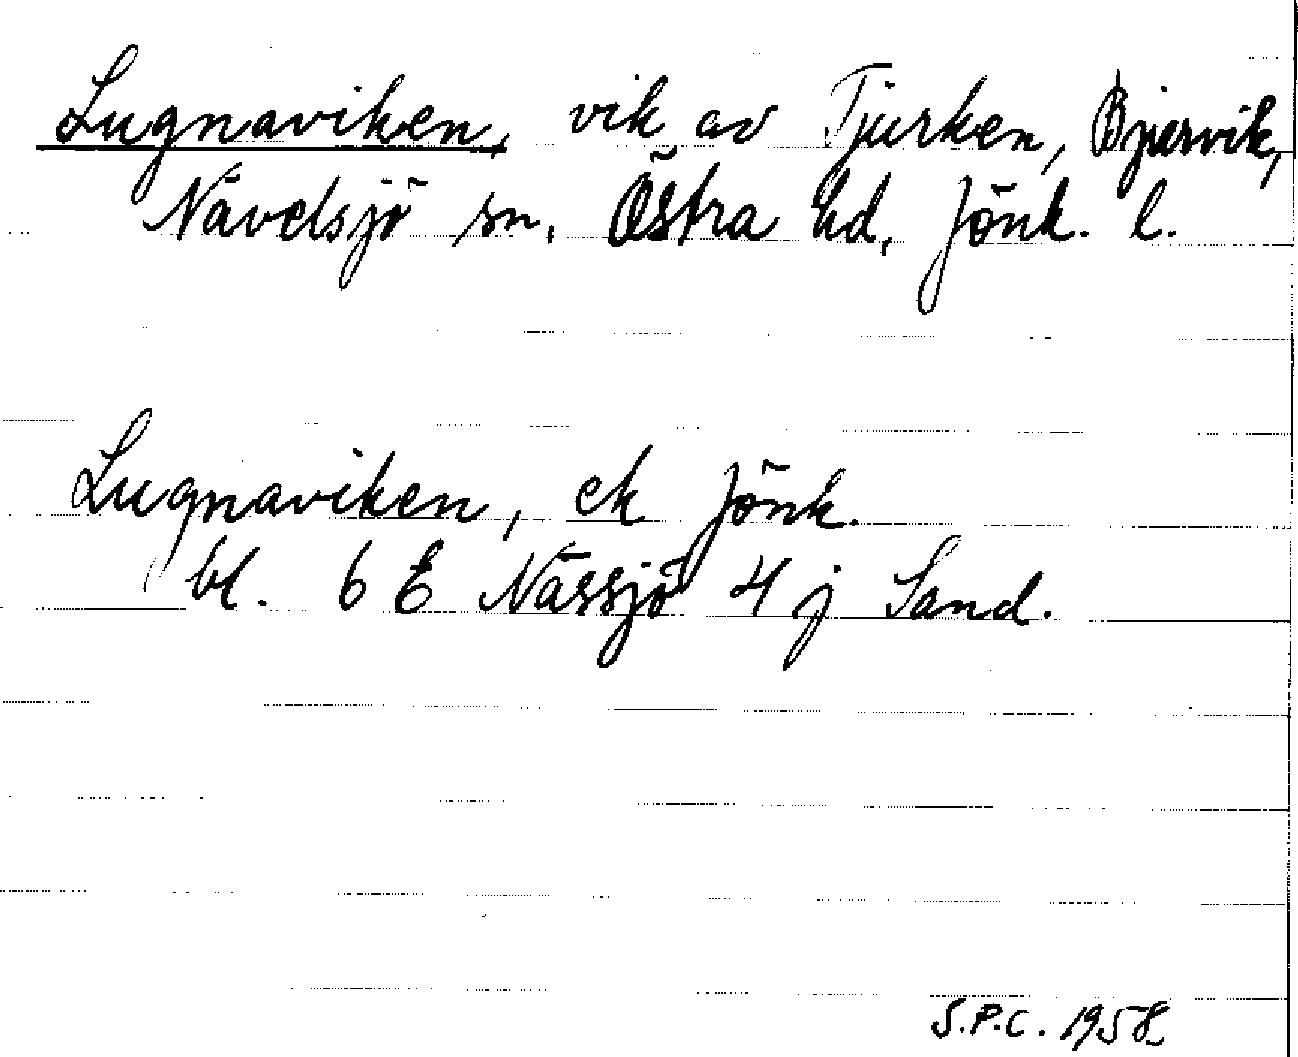 Lugnaviken, vik av Tjurken, Bjurvik,
Nävelsjö sn, Östra hd, Jönk. l.
Lugnaviken, ek Jönk.
bl. 6 E Nässjö 4 j Sand.
S.P.C. 1958